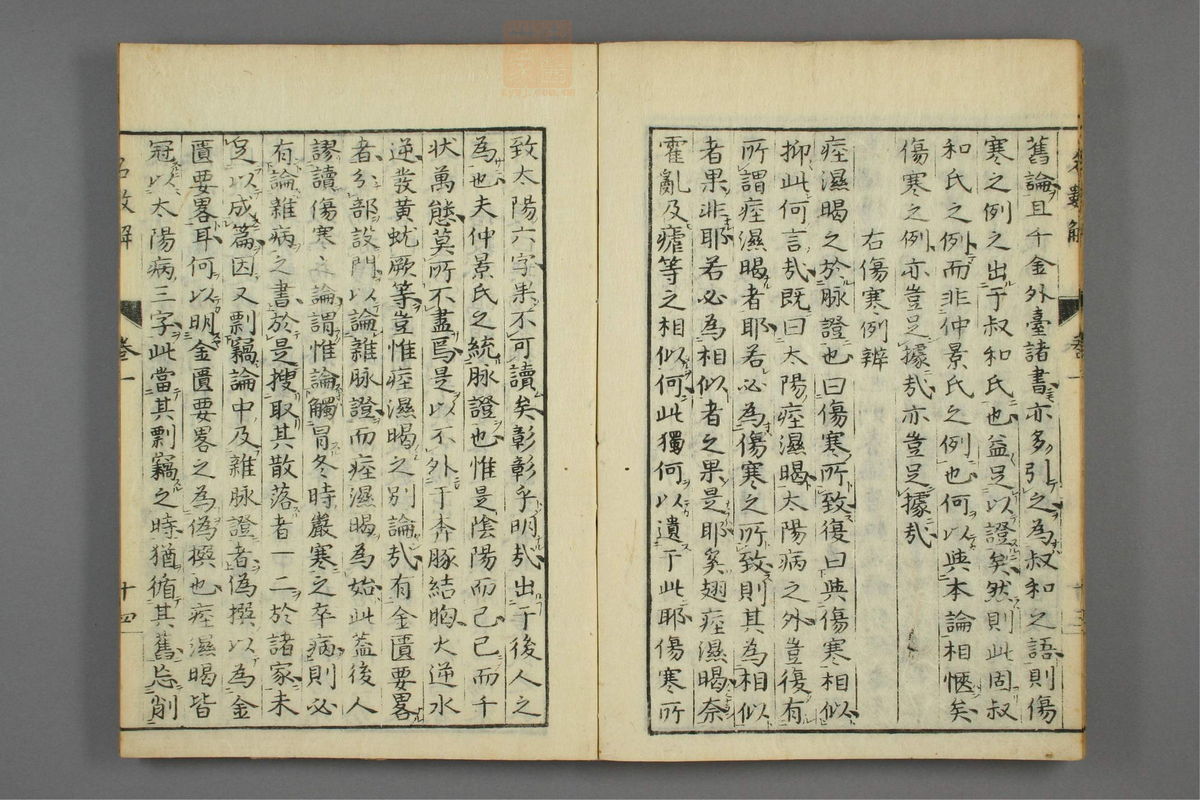 舊論且千金外臺諸書亦多引之為叔和之語則傷
寒之例之出于叔和氏也益足以證矣然則此固叔
和氏之例而非仲景氏之例也何以與本論相愜矣
傷寒之例亦豈足據哉亦豈足據哉
右傷寒例辨
痙濕暍之於脉證也曰傷寒所致復曰與傷寒相似
抑此何言哉既曰太陽痙濕暍太陽病之外豈復有
所謂痙濕暍者耶若必為傷寒之所致則其為相似
者果非耶若必為相似者之果是耶奚翅痙濕暍奈
霍亂及瘧等之相似何此獨何以遺于此耶傷寒所
致太陽六字果不可讀矣彰彰乎明哉出于後人之
為也夫仲景氏之統脉證也惟是陰陽而已已而千
狀萬態莫所不盡焉是以不外于奔豚結胸火逆水
逆發黃蚘厥等豈惟痙濕暍之別論哉有金匱要畧
者分部設門以論雜脉證而痙濕暍為始此蓋後人
謬讀傷寒之論謂惟論觸冒冬時嚴寒之卒病則必
有論雜病之書於是搜取其散落者一二於諸家未
足以成篇因又剽竊論中及雜脉證者偽撰以為金
匱要畧耳何以明金匱要畧之為偽撰也痙濕暍皆
冠以太陽病三字此當其剽竊之時猶循其舊忘削
名數解
卷一
十四